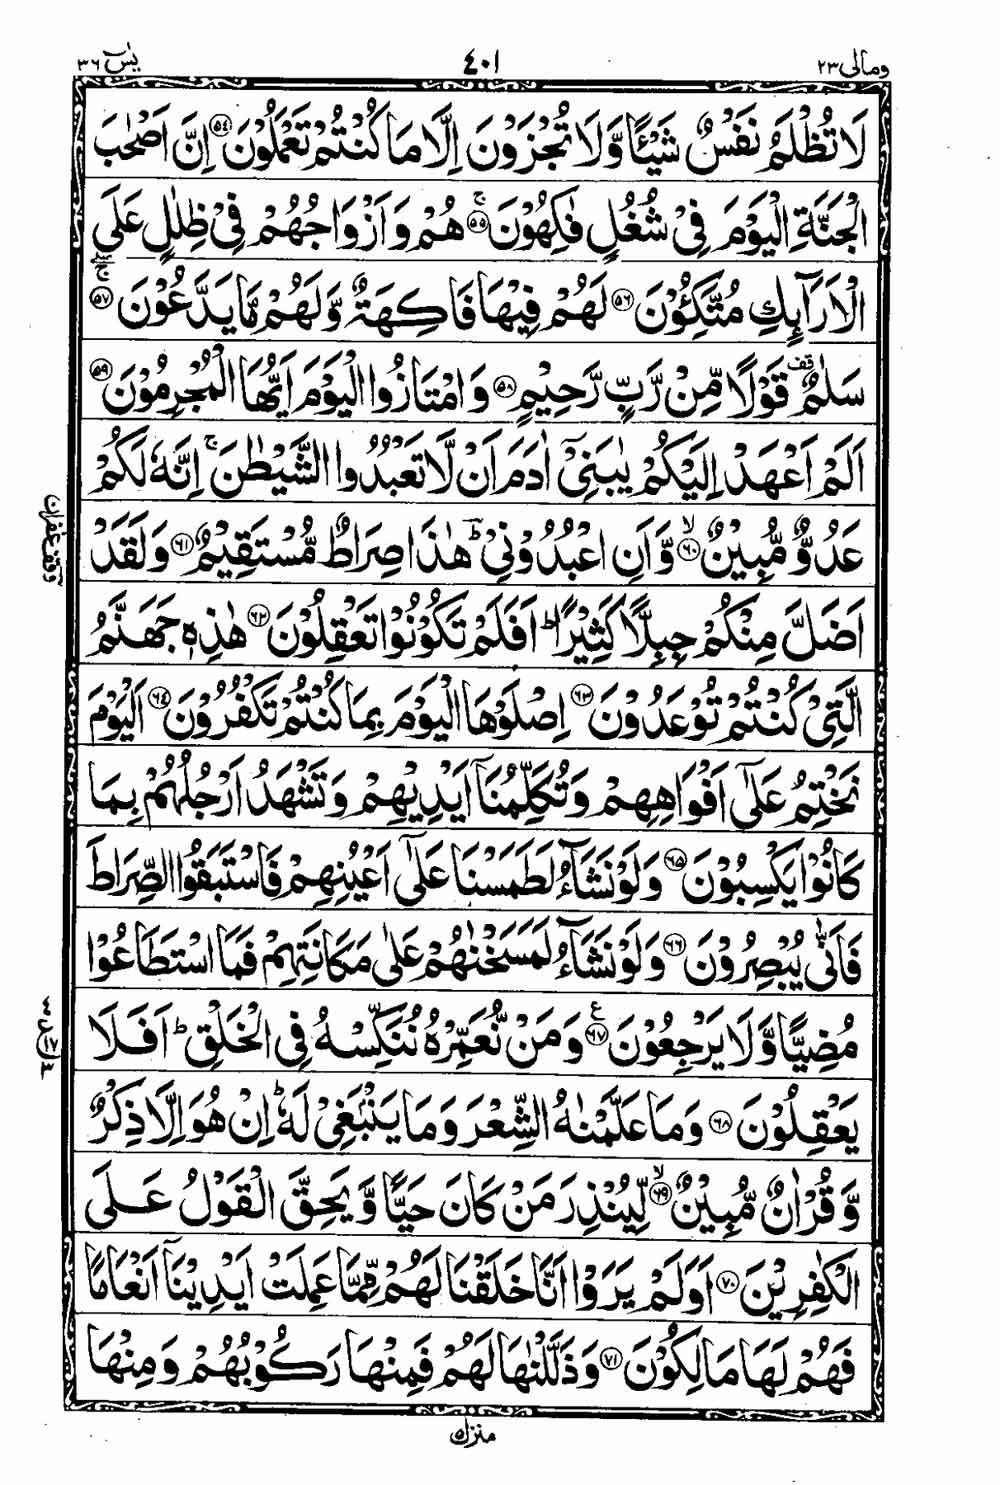 ومالی ٢٣
٤٠١
یٰسٓ ٣٦
لَا تُظْلَمُ نَفْسٌ شَیْـًٔا وَّلَا تُجْزَوْنَ اِلَّا مَا كُنْتُمْ تَعْمَلُوْنَ ﴿٥٤﴾ اِنَّ اَصْحٰبَ
الْجَنَّةِ الْیَوْمَ فِیْ شُغُلٍ فٰكِهُوْنَ ۚ﴿٥٥﴾ هُمْ وَاَزْوَاجُهُمْ فِیْ ظِلٰلٍ عَلَی
الْاَرَآىِٕكِ مُتَّكِـُٔوْنَ ﴿٥٦﴾ لَهُمْ فِیْهَا فَاكِهَةٌ وَّلَهُمْ مَّا یَدَّعُوْنَ ﴿٥٧﴾
سَلٰمٌ قف قَوْلًا مِّنْ رَّبٍّ رَّحِیْمٍ ﴿٥٨﴾ وَامْتَازُوا الْیَوْمَ اَیُّهَا الْمُجْرِمُوْنَ ﴿٥٩﴾
اَلَمْ اَعْهَدْ اِلَیْكُمْ یٰبَنِیْۤ اٰدَمَ اَنْ لَّا تَعْبُدُوا الشَّیْطٰنَ ۚ اِنَّهٗ لَكُمْ
عَدُوٌّ مُّبِیْنٌ ۙ﴿٦٠﴾ وَّاَنِ اعْبُدُوْنِیْ ؕ هٰذَا صِرَاطٌ مُّسْتَقِیْمٌ ﴿٦١﴾ وَلَقَدْ
وقف غفران
اَضَلَّ مِنْكُمْ جِبِلًّا كَثِیْرًا ؕ اَفَلَمْ تَكُوْنُوْا تَعْقِلُوْنَ ﴿٦٢﴾ هٰذِهٖ جَهَنَّمُ
الَّتِیْ كُنْتُمْ تُوْعَدُوْنَ ﴿٦٣﴾ اِصْلَوْهَا الْیَوْمَ بِمَا كُنْتُمْ تَكْفُرُوْنَ ﴿٦٤﴾ اَلْیَوْمَ
نَخْتِمُ عَلٰۤی اَفْوَاهِهِمْ وَتُكَلِّمُنَاۤ اَیْدِیْهِمْ وَتَشْهَدُ اَرْجُلُهُمْ بِمَا
كَانُوْا یَكْسِبُوْنَ ﴿٦٥﴾ وَلَوْ نَشَآءُ لَطَمَسْنَا عَلٰۤی اَعْیُنِهِمْ فَاسْتَبَقُوا الصِّرَاطَ
فَاَنّٰی یُبْصِرُوْنَ ﴿٦٦﴾ وَلَوْ نَشَآءُ لَمَسَخْنٰهُمْ عَلٰی مَكَانَتِهِمْ فَمَا اسْتَطَاعُوْا
مُضِیًّا وَّلَا یَرْجِعُوْنَ ﴿٦٧﴾ ع وَمَنْ نُّعَمِّرْهُ نُنَكِّسْهُ فِی الْخَلْقِ ؕ اَفَلَا
یَعْقِلُوْنَ ﴿٦٨﴾ وَمَا عَلَّمْنٰهُ الشِّعْرَ وَمَا یَنْۢبَغِیْ لَهٗ ؕ اِنْ هُوَ اِلَّا ذِكْرٌ
وَّقُرْاٰنٌ مُّبِیْنٌ ۙ﴿٦٩﴾ لِّیُنْذِرَ مَنْ كَانَ حَیًّا وَّیَحِقَّ الْقَوْلُ عَلَی
الْكٰفِرِیْنَ ﴿٧٠﴾ اَوَلَمْ یَرَوْا اَنَّا خَلَقْنَا لَهُمْ مِّمَّا عَمِلَتْ اَیْدِیْنَاۤ اَنْعَامًا
فَهُمْ لَهَا مَالِكُوْنَ ﴿٧١﴾ وَذَلَّلْنٰهَا لَهُمْ فَمِنْهَا رَكُوْبُهُمْ وَمِنْهَا
منزل ٥